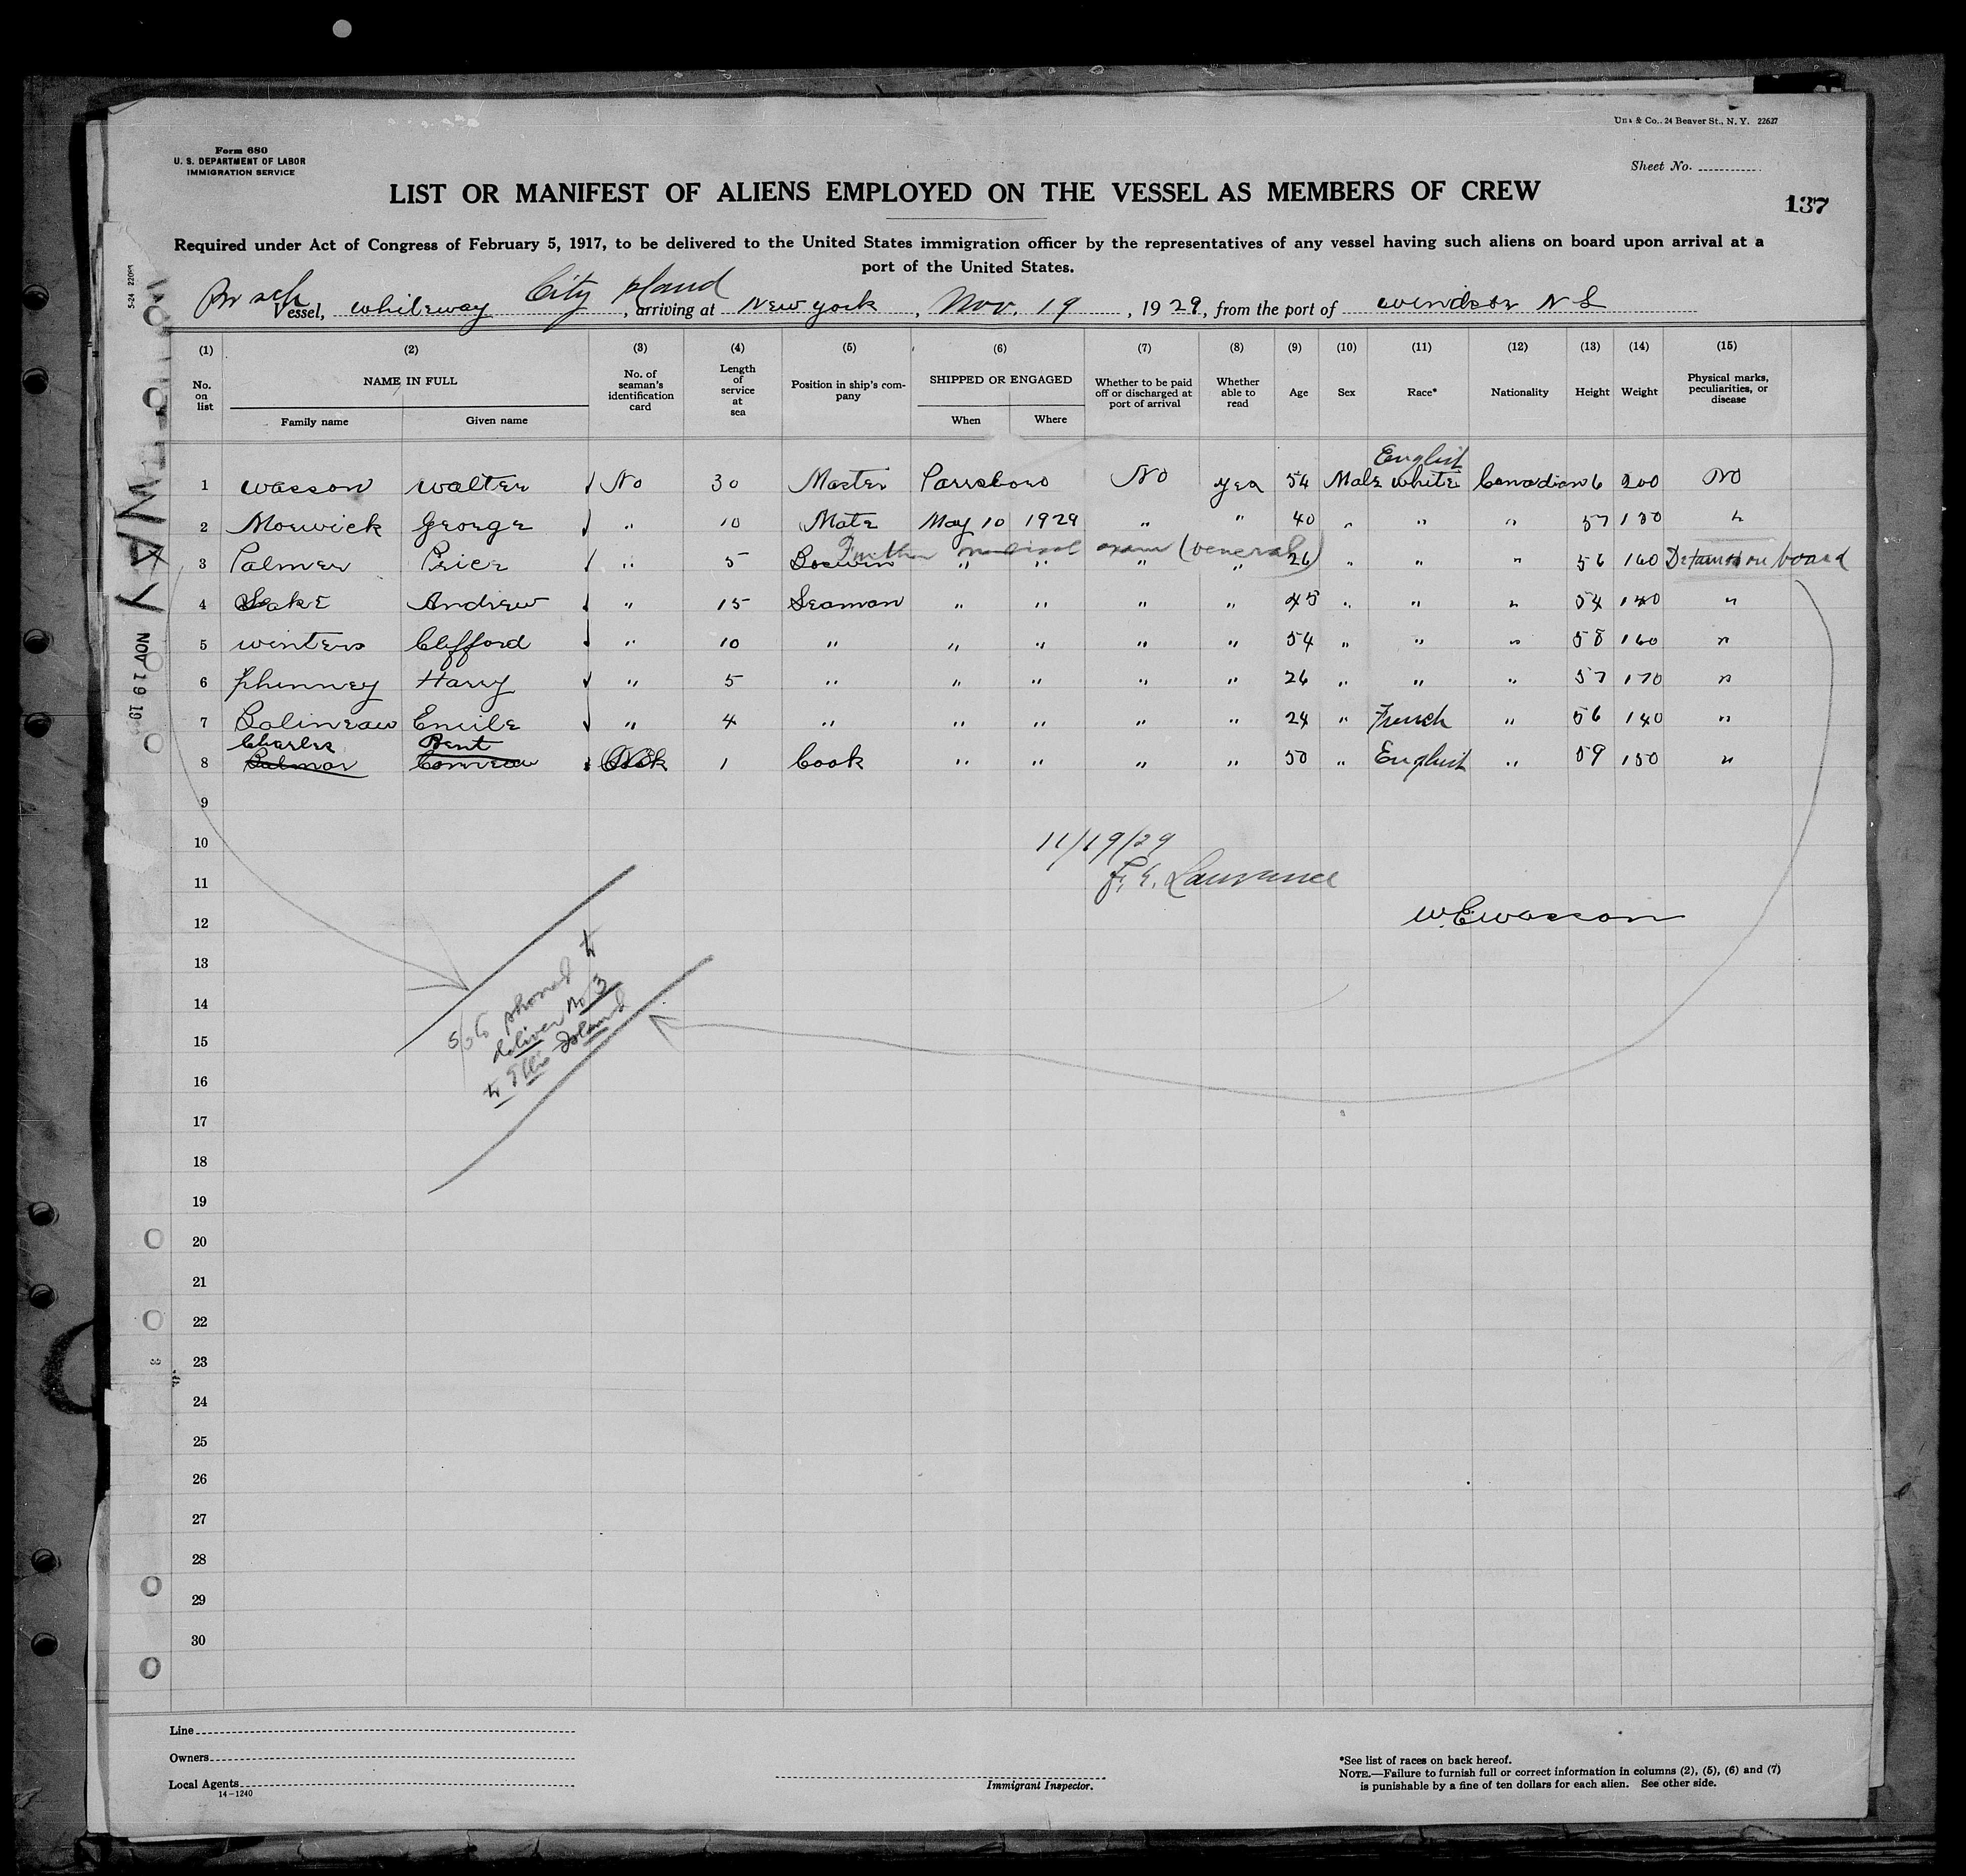 Form 680
U. S. DEPARTMENT OF LABOR
IMMIGRATION SERVICE
& Co., 24 Beaver St., N. Y. 22627
Sheet No.
LIST OR MANIFEST OF ALIENS EMPLOYED ON THE VESSEL AS MEMBERS OF CREW
137
Required under Act of Congress of February 5, 1917, to be delivered to the United States immigration officer by the representatives of any vessel having such aliens on board upon arrival at a
port of the United States.
Br sch essel, Whiteway City Island, arriving at New York, Nov. 19, 1929, from the port of Windsor N S
(1) (2) (3) (4) (5) (6) (7) (8) (9) (10) (11) (12) (13) (14) (15)
No. on list NAME IN FULL Family name Given name No. of seaman's identification card Length of service at sea Position in ship's company SHIPPED OR ENGAGED When Where Whether to be paid off or discharged at port of arrival Whether able to read Age Sex Race* Nationality Height Weight Physical marks, peculiarities, or disease
English
1 Wasson Walter No 30 Master Parrsboro No yes 54 Male White Canadian 6 200 No
2 George " 10 Mate May 10 1929 " " 40 " " " 57 130 "
Further medical exam (veneral)
3 Palmer Price " 5 " " " " 26 " " " 56 160 Detained on board
4 Andrew " 15 Seaman " " " " 45 " " " 54 140 "
5 Winters Clifford " 10 " " " " " 54 " " " 58 160 "
6 Phinney Harry " 5 " " " " " 26 " " " 57 170 "
7 Emile " 4 " " " " " 24 " French " 56 140 "
Charles Bent
8 1 Cook " " " " 50 " English " 59 150 "
9
10 11/19/29
11 Lawrence
12 W.E Wasson
13
14
phoned to
deliver No 3
to Ellis Island
15
16
17
18
19
20
21
22
23
24
25
26
27
28
29
30
NOV 19 19
5-24
Line
Owners
Local Agents
14-1240
Immigrant Inspector.
*See list of races on back hereof.
NOTE.—Failure to furnish full or correct information in columns (2), (5), (6) and (7)
is punishable by a fine of ten dollars for each alien. See other side.